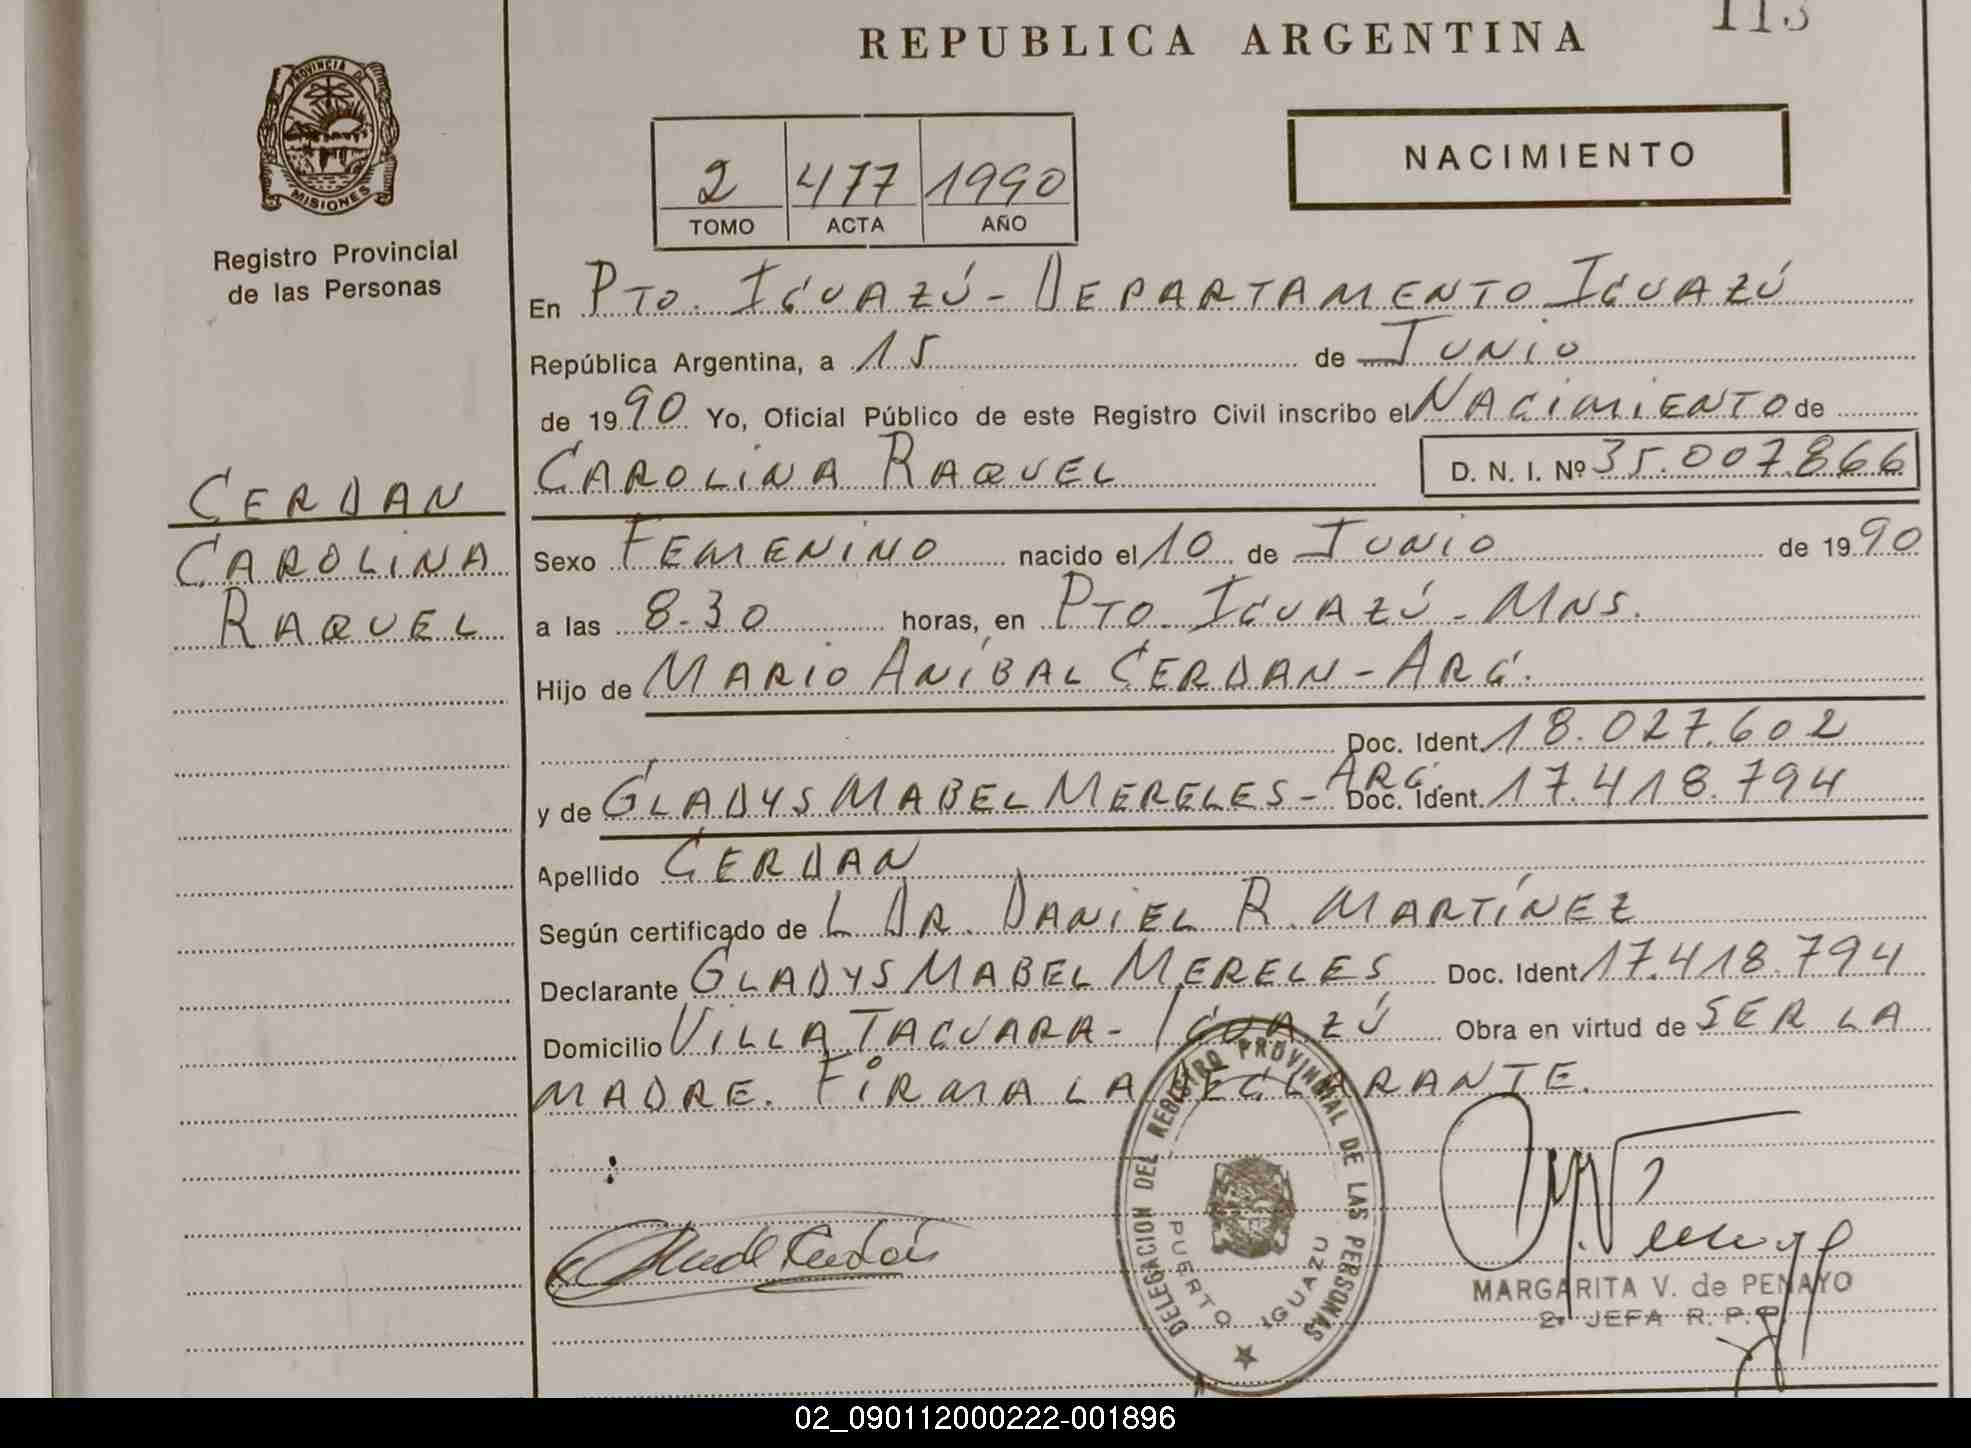 113
REPUBLICA ARGENTINA
PROVINCIA DE
MISIONES
Registro Provincial
de las Personas
NACIMIENTO
2 477 1990
TOMO ACTA AÑO
En PTO. IGUAZÚ - DEPARTAMENTO IGUAZÚ
República Argentina, a 15 de JUNIO
de 1990 Yo, Oficial Público de este Registro Civil inscribo el NACIMIENTO de
CAROLINA RAQUEL D. N. I. Nº 35.007.866
CERDAN
CAROLINA
RAQUEL
Sexo FEMENINO nacido el 10 de JUNIO de 1990
a las 8.30 horas, en PTO. IGUAZÚ - MNS.
Hijo de MARIO ANÍBAL CERDAN - ARG.
Doc. Ident. 18.027.602
y de GLADYS MABEL MERELES - ARG. Doc. Ident. 17.418.794
Apellido CERDAN
Según certificado de L DR. DANIEL R. MARTÍNEZ
Declarante GLADYS MABEL MERELES Doc. Ident. 17.418.794
Domicilio VILLA TACUARA - IGUAZÚ Obra en virtud de SER LA
MADRE. FIRMA LA DECLARANTE.
DELEGACION DEL REGISTRO PROVINCIAL DE LAS PERSONAS
PUERTO IGUAZU
MARGARITA V. de PENAYO
2ª JEFA R. P. P.
02_090112000222-001896